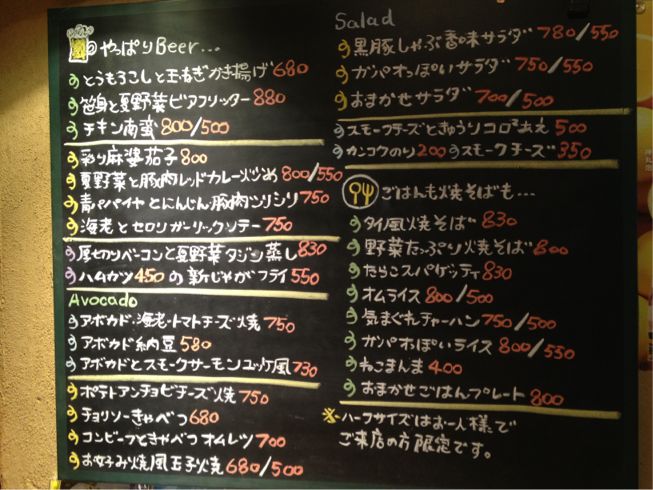 やっぱりBeer...
とうもろこしと玉ねぎかき揚げ 680
笹身と夏野菜ビアフリッター 880
チキン南蛮 800/500
彩り麻醬茄子 800
夏野菜と豚肉レッドカレー炒め 800/550
青パパイヤとにんじん豚肉ソリシリ 750
海老とセロリガーリックソテー 750
厚切りベーコンと夏野菜タジン蒸し 830
ハムカツ 450 の新じゃがフライ 550
Avocado
アボカド・海老・トマトチーズ焼 750
アボカド納豆 580
アボカドとスモークサーモンユッケ風 730
ポテトアンチョビチーズ焼 750
チョリソーきゃべつ 680
コンビーフときゃべつオムレツ 700
お好み焼風玉子焼 680/500
Salad
黒豚しゃぶ香味サラダ 780/550
ガパオっぽいサラダ 750/550
おまかせサラダ 700/500
スモークチーズときゅうりコロコロあえ 500
カンコクのり 200 スモークチーズ 350
ごはんも焼そばも...
タイ風焼そば 830
野菜たっぷり焼そば 800
たらこスパゲッティ 830
オムライス 800/500
気まぐれチャーハン 750/500
ガパオっぽいライス 800/550
ねこまんま 400
おまかせごはんプレート 800
※ハーフサイズはお一人様で
ご来店の方限定です。